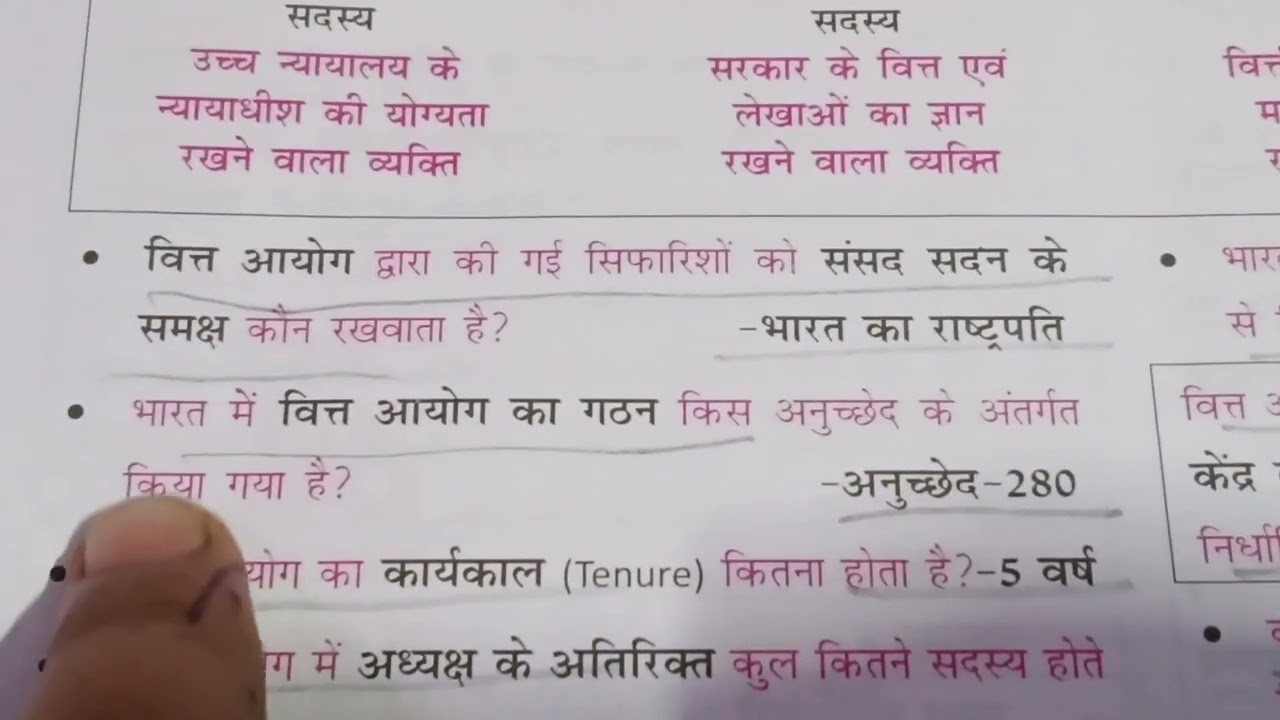 सदस्य
उच्च न्यायालय के
न्यायाधीश की योग्यता
रखने वाला व्यक्ति
सदस्य
सरकार के वित्त एवं
लेखाओं का ज्ञान
रखने वाला व्यक्ति
• वित्त आयोग द्वारा की गई सिफारिशों को संसद सदन के
समक्ष कौन रखवाता है? -भारत का राष्ट्रपति
• भारत में वित्त आयोग का गठन किस अनुच्छेद के अंतर्गत
किया गया है? -अनुच्छेद-280
का कार्यकाल (Tenure) कितना होता है?-5 वर्ष
में अध्यक्ष के अतिरिक्त कुल कितने सदस्य होते
से
वित्त
केंद्र